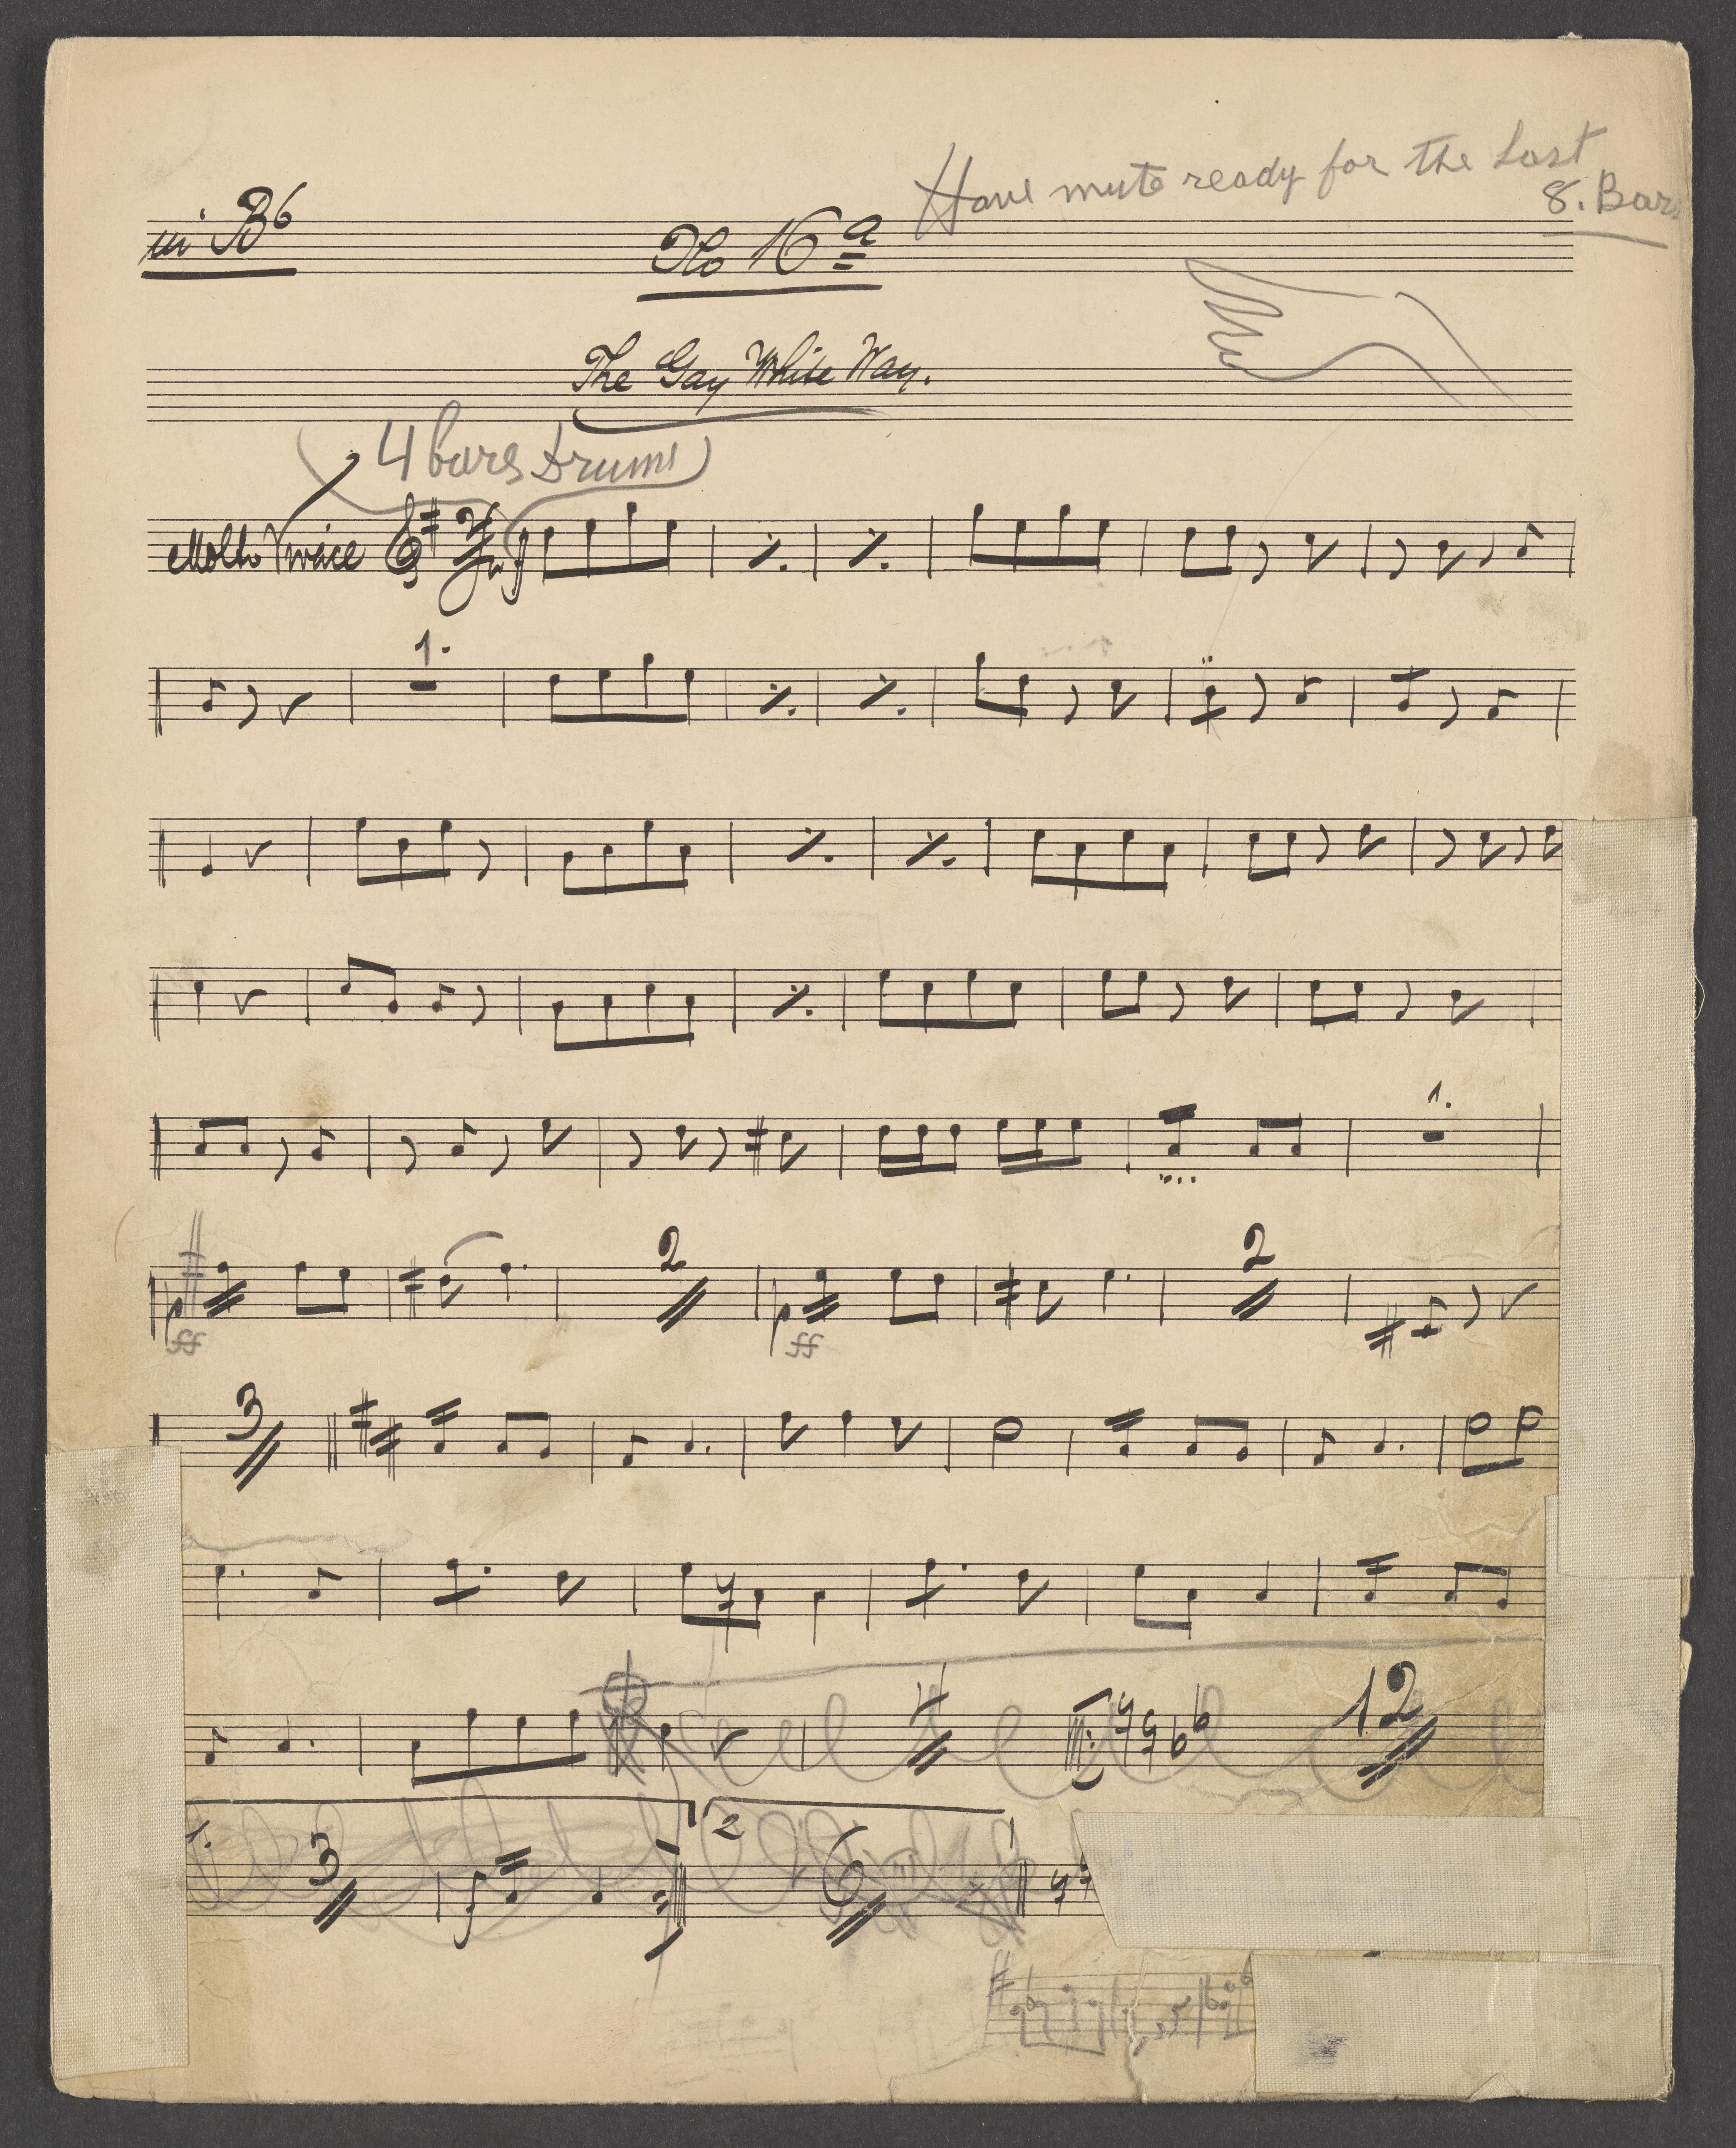 Have mute ready for the Last
8. Bars
in Bb
No 16a
The Gay White Way.
4 bars Drums
Molto Vivace
1.
1.
2
2
ff
ff
3
12
1.
2
3
f
6